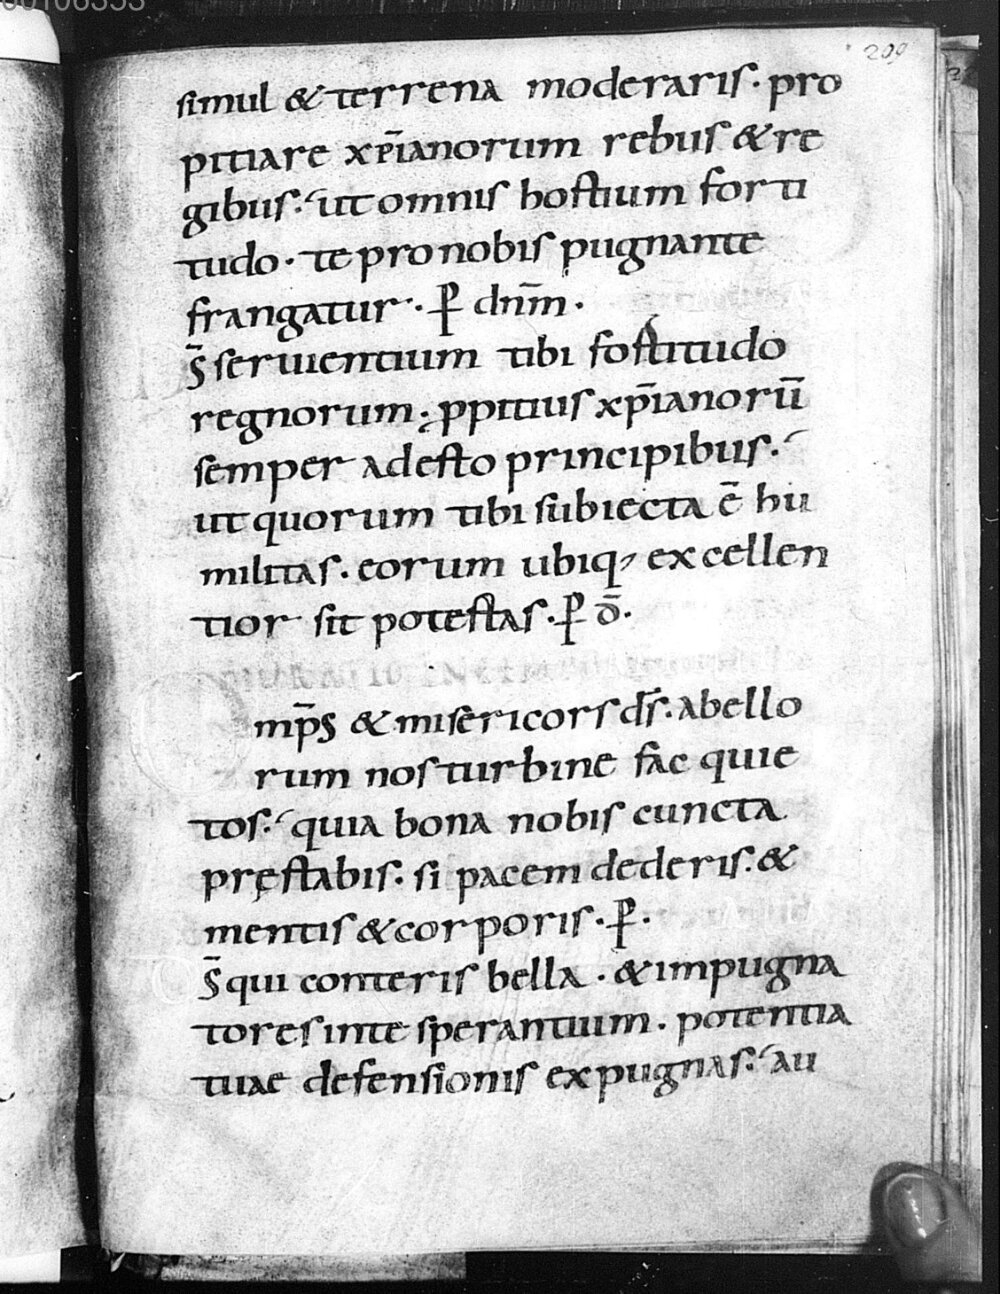 00106353
209
simul & terrena moderaris. pro
pitiare xp̄ianorum rebus & re
gibus. ut omnis hostium forti
tudo. te pro nobis pugnante
frangatur. P̄ dn̄m.
S̄ servientium tibi fortitudo
regnorum. ppitius xp̄ianorū
semper adesto principibus.
ut quorum tibi subiecta ē hu
militas. eorum ubiq; excellen
tior sit potestas. P̄ d̄.
mp̄s & misericors ds̄. a bello
rum nos turbine fac quie
tos. quia bona nobis cuncta
pręstabis. si pacem dederis. &
mentis & corporis. P̄.
S̄ qui conteris bella. & impugna
tores in te sperantium. potentia
tuae defensionis expugnas. au